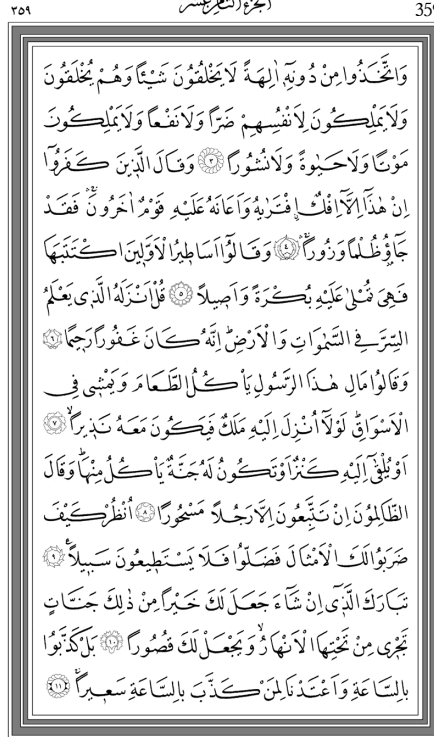 ٣٥٩ الجزء الثامن عشر 359
وَاتَّخَذُوا مِنْ دُونِهٖٓ اٰلِهَةً لَا يَخْلُقُونَ شَيْئًا وَهُمْ يُخْلَقُونَ
وَلَا يَمْلِكُونَ لِاَنْفُسِهِمْ ضَرًّا وَلَا نَفْعًا وَلَا يَمْلِكُونَ
مَوْتًا وَلَا حَيٰوةً وَلَا نُشُورًا ﴿٣﴾ وَقَالَ الَّذٖينَ كَفَرُٓوا
اِنْ هٰذَٓا اِلَّٓا اِفْكٌۨ افْتَرٰيهُ وَاَعَانَهُ عَلَيْهِ قَوْمٌ اٰخَرُونَۚۛ فَقَدْ
جَٓاؤُ۫ ظُلْمًا وَزُورًاۚۛ ﴿٤﴾ وَقَالُٓوا اَسَاطٖيرُ الْاَوَّلٖينَ اكْتَتَبَهَا
فَهِيَ تُمْلٰى عَلَيْهِ بُكْرَةً وَاَصٖيلًا ﴿٥﴾ قُلْ اَنْزَلَهُ الَّذٖي يَعْلَمُ
السِّرَّ فِي السَّمٰوَاتِ وَالْاَرْضِۜ اِنَّهُ كَانَ غَفُورًا رَحٖيمًا ﴿٦﴾
وَقَالُوا مَالِ هٰذَا الرَّسُولِ يَاْكُلُ الطَّعَامَ وَيَمْشٖي فِي
الْاَسْوَاقِۜ لَوْلَٓا اُنْزِلَ اِلَيْهِ مَلَكٌ فَيَكُونَ مَعَهُ نَذٖيرًاۙ ﴿٧﴾
اَوْ يُلْقٰٓى اِلَيْهِ كَنْزٌ اَوْ تَكُونُ لَهُ جَنَّةٌ يَاْكُلُ مِنْهَاۜ وَقَالَ
الظَّالِمُونَ اِنْ تَتَّبِعُونَ اِلَّا رَجُلًا مَسْحُورًا ﴿٨﴾ اُنْظُرْ كَيْفَ
ضَرَبُوا لَكَ الْاَمْثَالَ فَضَلُّوا فَلَا يَسْتَطٖيعُونَ سَبٖيلًا۟ ﴿٩﴾
تَبَارَكَ الَّذٖٓي اِنْ شَٓاءَ جَعَلَ لَكَ خَيْرًا مِنْ ذٰلِكَ جَنَّاتٍ
تَجْرٖي مِنْ تَحْتِهَا الْاَنْهَارُۙ وَيَجْعَلْ لَكَ قُصُورًا ﴿١٠﴾ بَلْ كَذَّبُوا
بِالسَّاعَةِ وَاَعْتَدْنَا لِمَنْ كَذَّبَ بِالسَّاعَةِ سَعٖيرًاۚ ﴿١١﴾